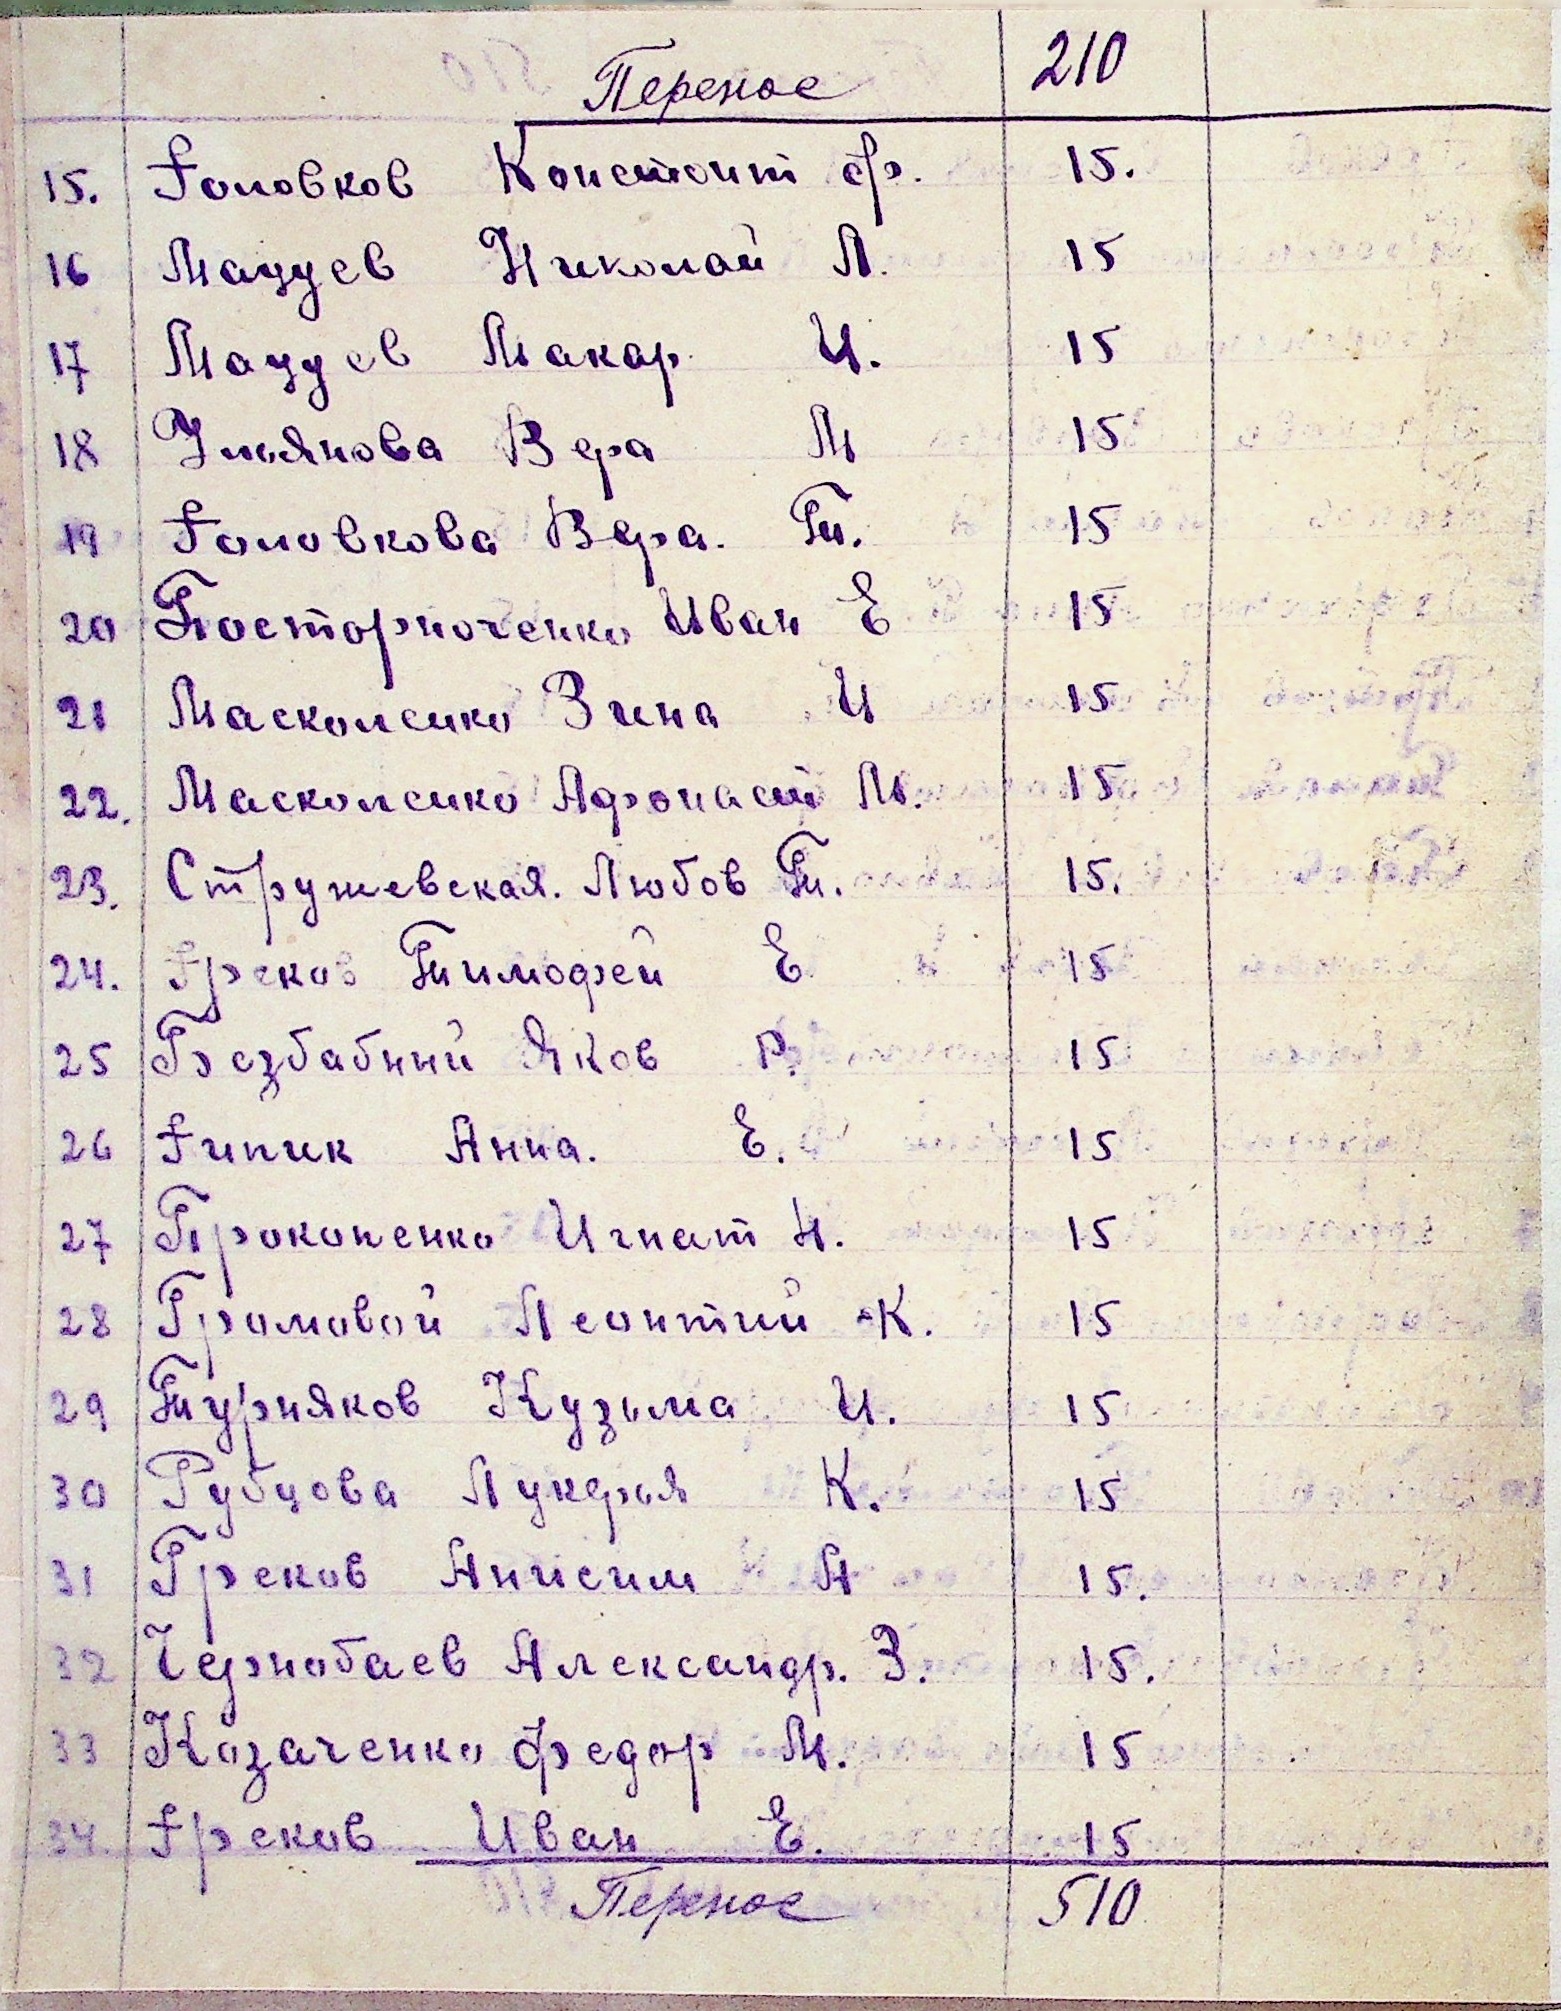 Перенос 210
15. Головков Констонт Ф. 15.
16 Мацуев Николай Л. 15
17 Мацуев Макар И. 15
18 Улоянова Вера М 15
19 Головкова Вера. Т. 15
20 Посторноченко Иван Е 15
21 Масколенко Зина И 15
22. Масколенко Афонасий М. 15
23. Стружевская. Любов Т. 15.
24. Греков Тимофей Е 15
25 Безбабний Яков Р. 15
26 Гипик Анна. Е. 15
27 Прокопенко Игнат Н. 15
28 Громовой Леонтий К. 15
29 Турняков Кузьма И. 15
30 Рубцова Лукерья К. 15
31 Греков Анисим А 15.
32 Чернобаев Александр. З. 15.
33 Козаченко Федор М. 15
34. Греков Иван Е. 15
Перенос 510